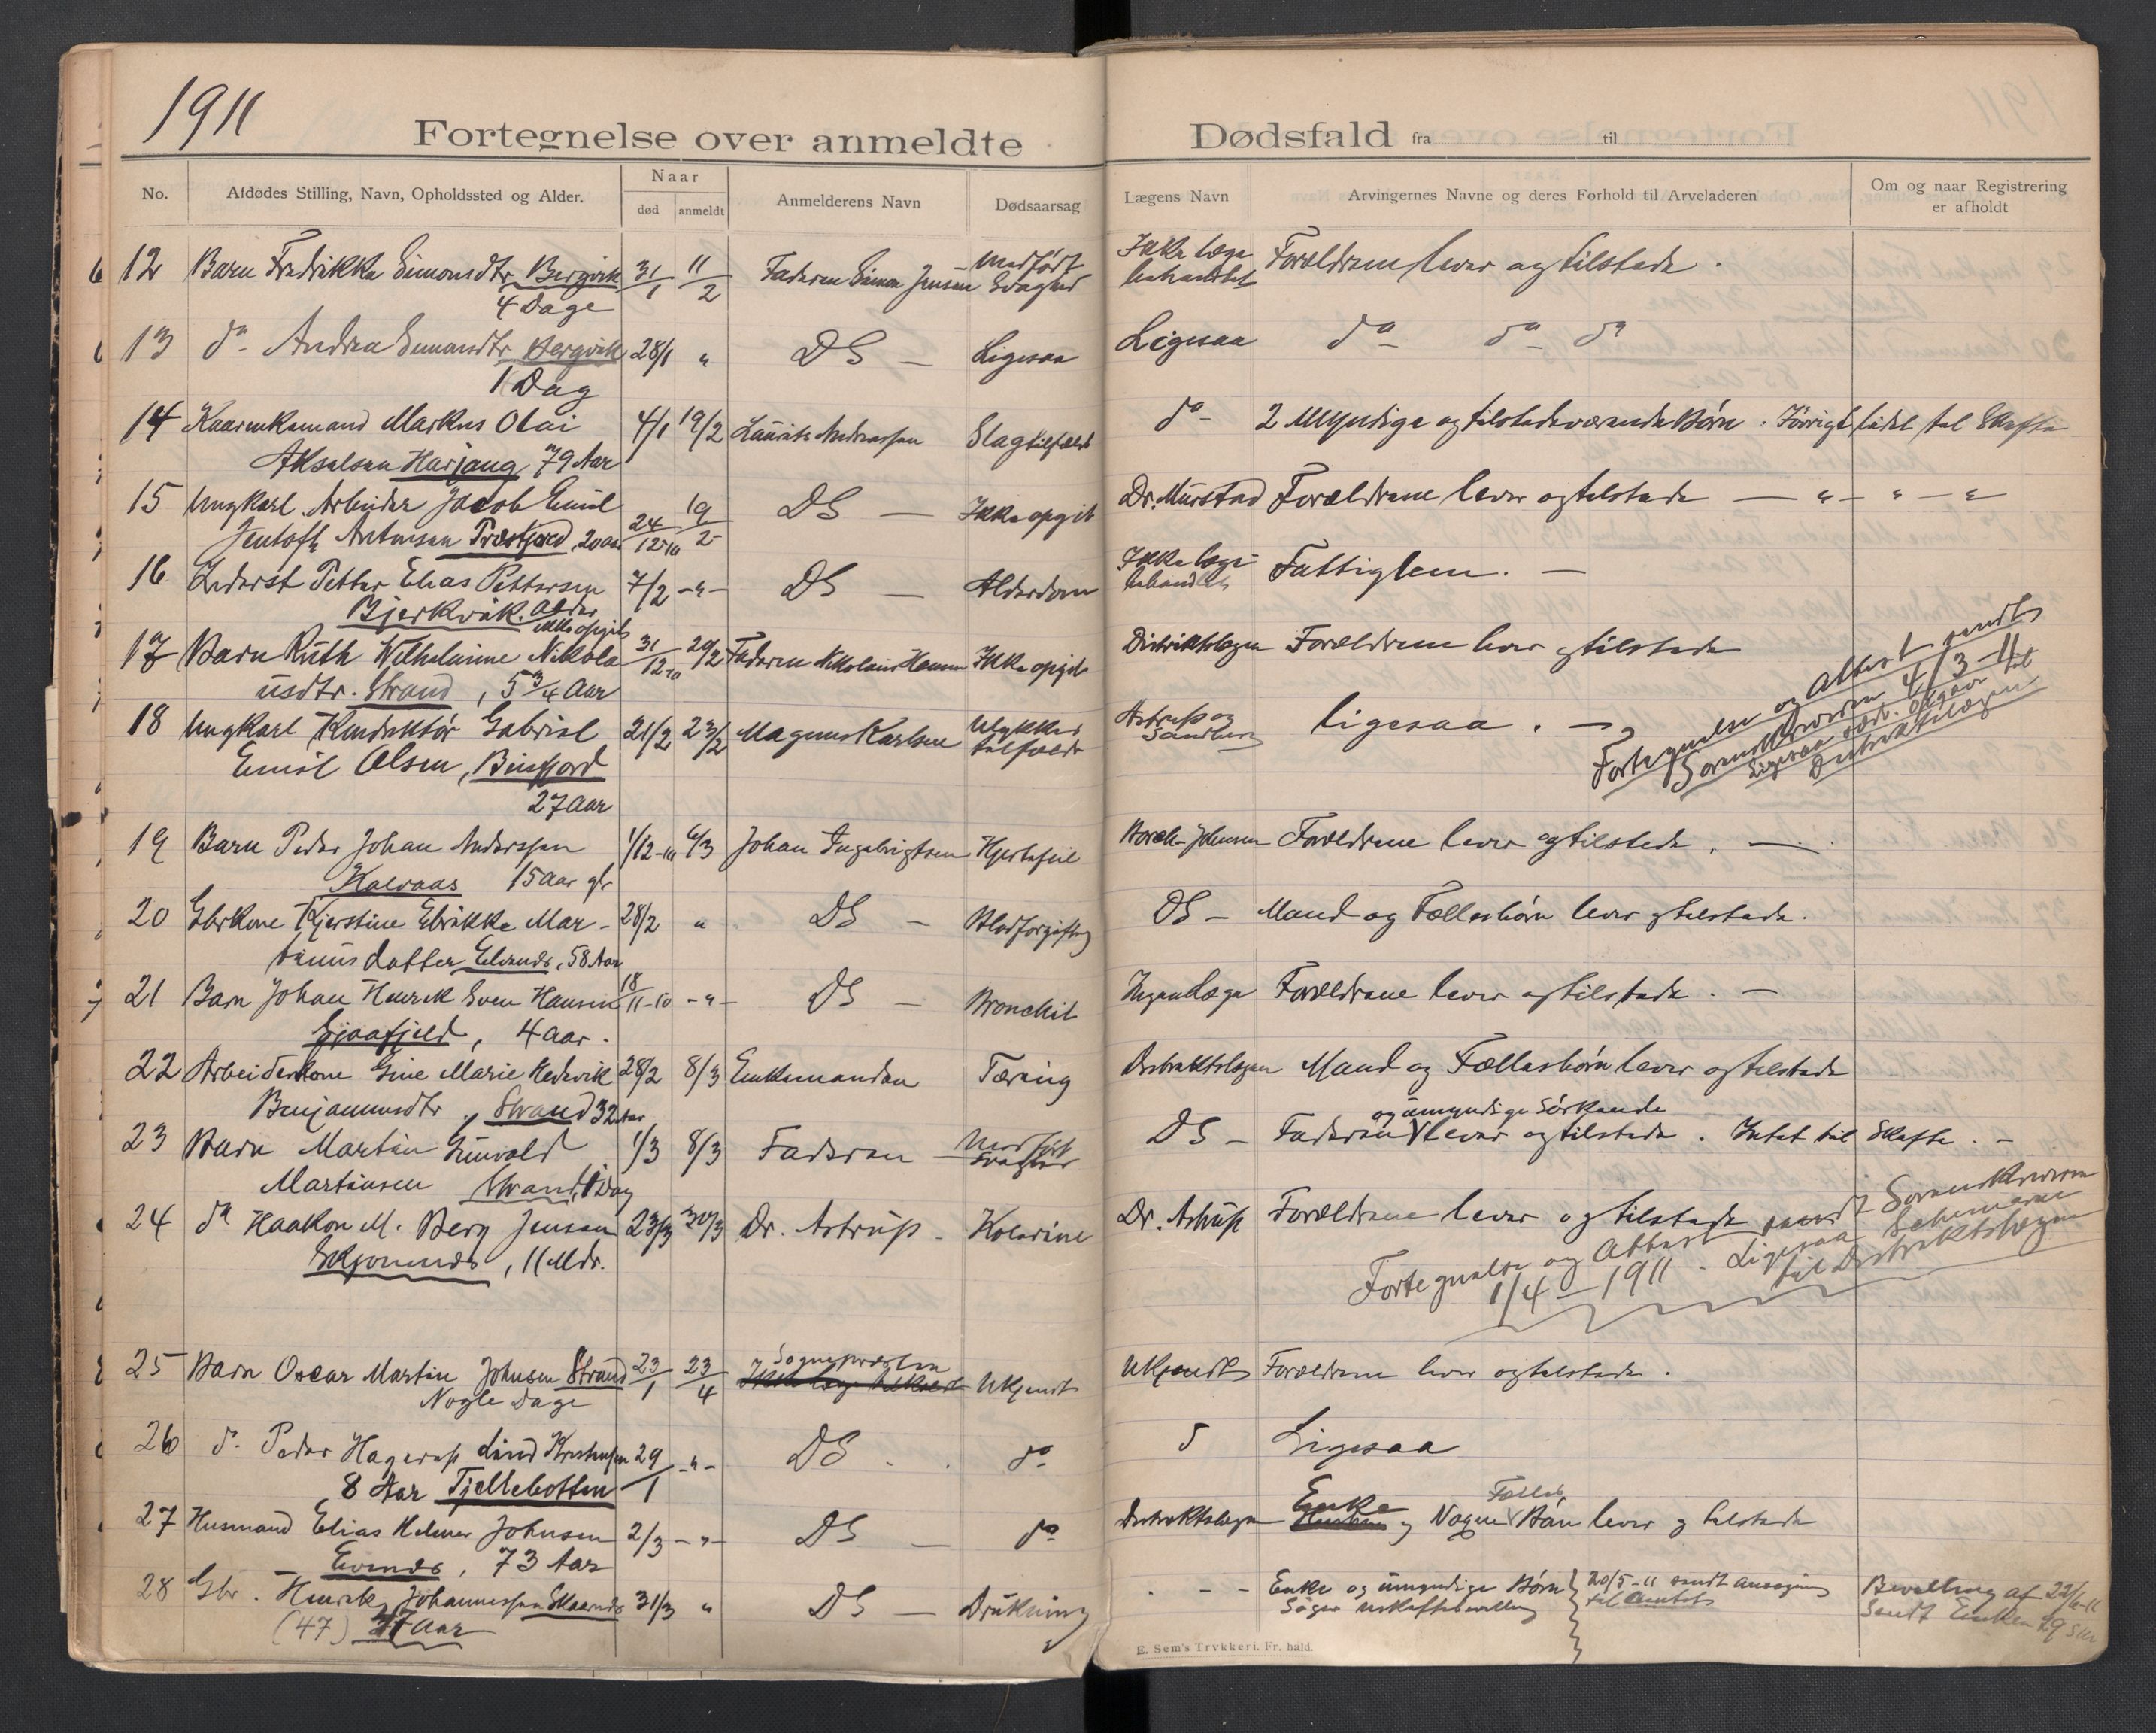 1911
Fortegnelse over anmeldte Dødsfald fra til
No. Afdødes Stilling, Navn, Opholdssted og Alder. Naar død anmeldt Anmelderens Navn Dødsaarsag Lægens Navn Arvingernes Navne og deres Forhold til Arveladeren Om og naar Registrering er afholdt
12 Barn Fredrikke Simonsdtr. Bergvik 31/1 11/2 Faderen Simon Jensen Medfødt Svaghed Ikke læge behandlet Forældrene lever og tilstede.
4 Dage
13 do Andrea Simonsdtr. Bergvik 28/1 " DS — Ligesaa Ligesaa do do do
1 Dag
14 Kaarenkamand Markus Olai 4/1 19/2 Laurits Andreassen Slagtilfælde do 2 Myndige og tilstedeværende Børn. Iøvrigt lidet til Skifte
Akselsen Harjang 79 Aar
15 Ungkarl Arbeider Jacob Emil 24/12-10 19/2 DS — Ikke opgit Dr. Murstad Forældrene lever og tilstede — " — " — "
Jentoft Antonsen Præstjord, 20 Aar
16 Inderst Petter Elias Pettersen 7/2 -"- DS — Alderdom Ikke læge behandlet Fattiglem. —
Bjerkvik. Alder ikke opgit
17 Barn Ruth Wilhelmine Nikola 31/12-10 20/2 Faderen Nikolaus Hansen Ikke opgit Distriktslægen Forældrene lever og tilstede
usdtr. Strand, 5 3/4 Aar
18 Ungkarl Konduktør Gabriel 21/2 23/2 Magnus Karlsen Ulykkestilfælde Astrup og Sandberg ligesaa. —
Emil Olsen, Beisfjord
27 Aar
Fortegnelse og Attest sendt
Sorenskriveren 4/3-11
Ligesaa til
Distriktslægen
19 Barn Peder Johan Anderssen 1/12-10 6/3 Johan Ingebrigtsen Hjertefeil Borch-Johnsen Forældrene lever og tilstede. —
Kalvaas 15 Aar gl.
20 Gbrkone Kjerstine Elrikke Mar- 28/2 " DS — Blodforgiftng DS — Mand og Fællesbørn lever og tilstede.
tinusdatter Elvenes, 58 Aar
21 Barn Johan Henrik Sven Hansen 18/11-10 -"- DS — Bronchit Ingen Læge Forældrene lever og tilstede. —
Gjaafjeld, 4 Aar.
22 Arbeiderkone Gine Marie Hedevik 28/2 8/3 Enkemanden Tæring Distriktslægen Mand og Fællesbørn lever og tilstede
Benjaminsdtr., Strand 32 Aar
23 Barn Martin Gunvald 1/3 8/3 Faderen Medfødt Svaghed DS — Faderen og umyndige Sørkende lever og tilstede. Intet til Skifte. —
Martinsen Strand, 1 Dag
24 do Haakon M. Berg Jensen 23/3 30/3 Dr. Astrup — Kolerine Dr. Astrup Forældrene lever og tilstede
Skjomnes, 11 Mdr.
Fortegnelse og Attest sendt Sorenskriveren
1/4-1911. Ligesaa Schemaer
til Distriktslægen
25 Barn Oscar Martin Johnsen Strand 23/1 23/4 Sogneprästen Ukjendt Ukjendt Forældrene lever og tilstede.
Nogle Dage
26 do Peder Hagerup Lind Kristensen 29/1 -"- DS do Ligesaa
8 Aar Tjellebotten
27 Husmand Elias Helmer Johnsen 2/3 -"- DS — do Distriktslægen Enke og Nogen Fælles Børn lever og tilstede
Evenes, 73 Aar
28 Gbr. Henrik Johannessen Skarnes 31/3 " DS — Drukning - - - Enke og umyndige Børn 20/5-11 sendt ansøgning Bevilling af 22/6-11
(47) 47 Aar Søger uskiftebevilling til Amtet Sendt Enken 29 s.m.
E. Sem's Trykkeri. Fr. hald.